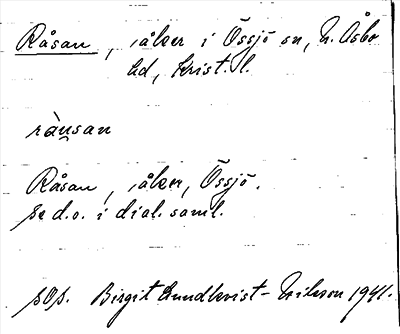 Råsan, åker i Össjö sn, N. Åsbo
hd, Krist. l.
ràu̯san
Råsan, åker, Össjö.
se d.o. i dial. saml.
sOs. Birgit Lundkvist-Nilsson 1941.